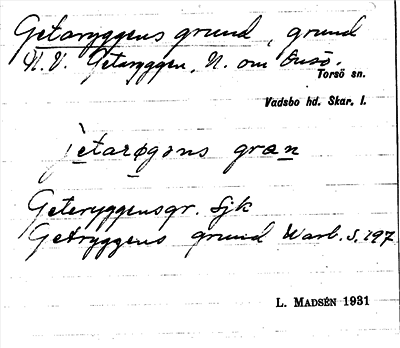 Getaryggens grund, grund
N.V. Getaryggen, N. om Onsö.
Torsö sn.
Vadsbo hd. Skar. l.
jetarøgəns græn
Geteryggensgr. Sjk
Getryggens grund Warb. S. 197
L. MADSÉN 1931